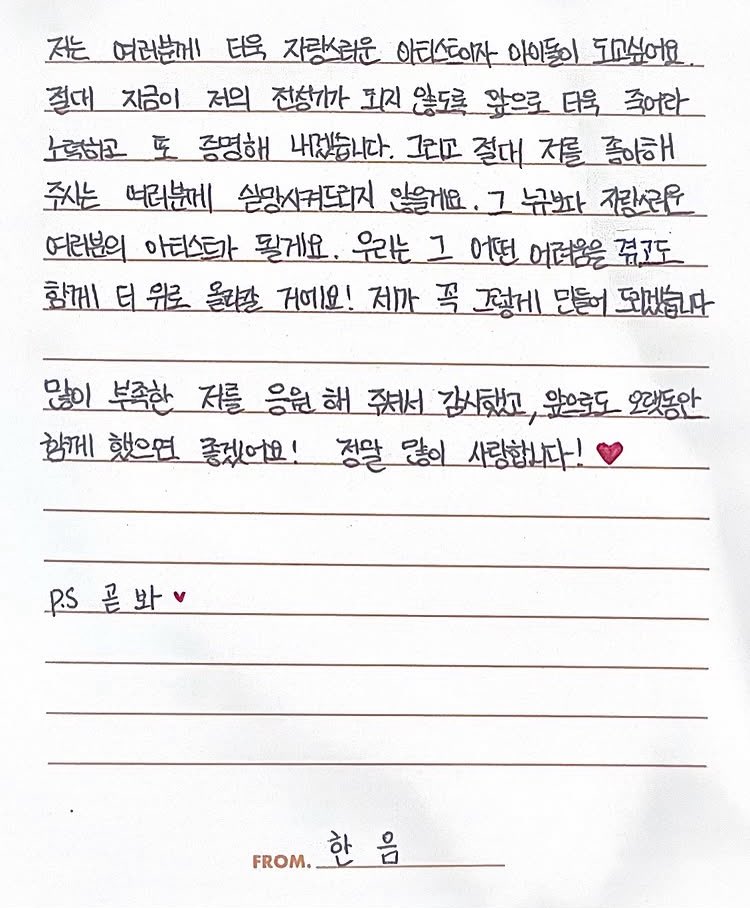 저는 여러분께 더욱 자랑스러운 아티스트이자 아이돌이 되고싶어요.
절대 지금이 저의 전성기가 되지 않도록 앞으로 더욱 죽어라
노력하고 또 증명해 내겠습니다. 그리고 절대 저를 좋아해
주시는 여러분께 실망시켜드리지 않을게요. 그 누구보다 자랑스러운
여러분의 아티스트가 될게요. 우리는 그 어떤 어려움을 겪고도
함께 더 위로 올라갈 거에요! 제가 꼭 그렇게 만들어 드리겠습니다
많이 부족한 저를 응원 해 주셔서 감사했고, 앞으로도 오랫동안
함께 했으면 좋겠어요! 정말 많이 사랑합니다! ♥
P.S 곧 봐 ♥
FROM. 한 음